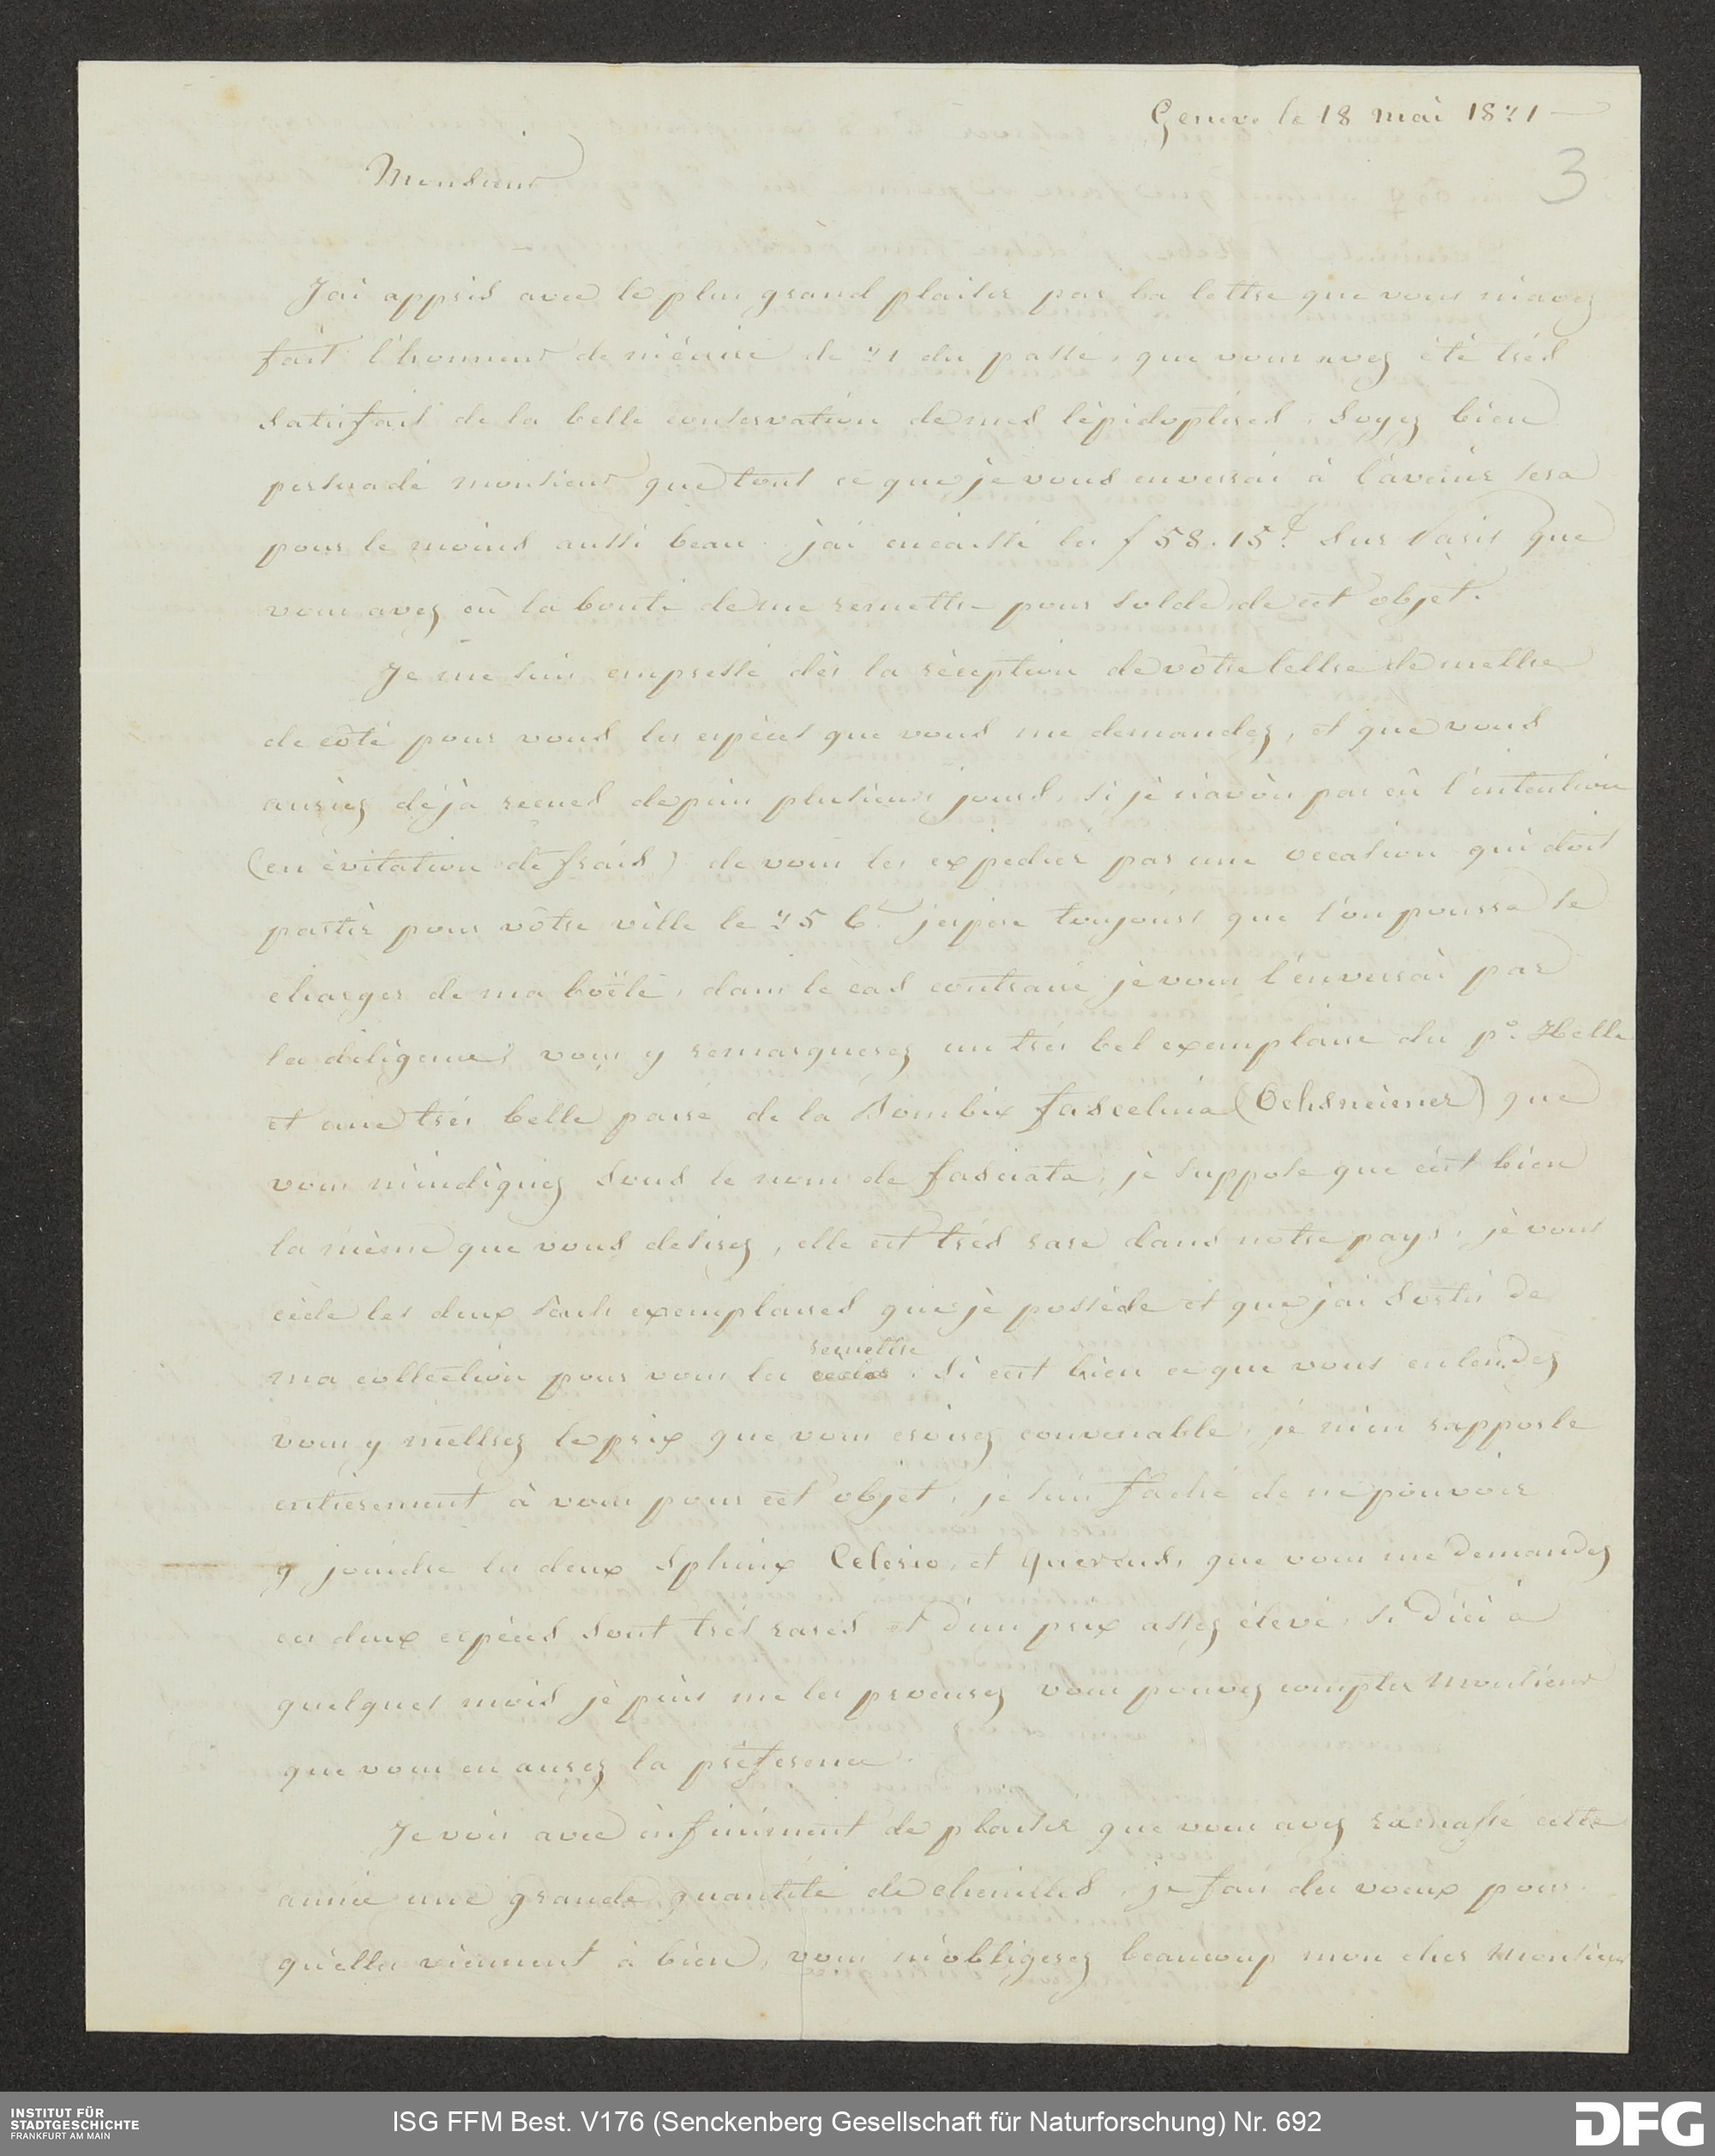 Geneve le 18 mai 1821
3
Monsieur
J'ai appris avec le plus grand plaisir par la lettre que vous m'avez
fait l'honneur de m'écrire de 21 du passé, que vous avez été trés
satisfait de la belle conservation de mes lépidoptères, soyez bien
persuadé monsieur que tout ce que je vous enverrai à l'avenir sera
pour le moins aussi beau. j'ai encaissé les f 58.15 sur Paris que
vous avez eû la bonté de me remettre pour solde de cet objet.
Je me suis empressé dès la réception de vôtre lettre de mettre
de côté pour vous les espèces que vous me demandez, et que vous
auriez déjà recues depuis plusieurs jours, si je n'avois pas eû l'intention
(en évitation de frais) de vous les expedier par une occasion qui doit
partir pour vôtre ville le 25 Ct j'espère toujours que l'on pourra se
charger de ma boëte, dans le cas contraire je vous l'enverrai par
la diligence, vous y remarquerez un très bel exemplaire du po. Helle
et une très belle paire de la Bombix fascelina (Ochsneimer) que
vous m'indiquez sous le nom de fasciata, je suppose que c'est bien
la même que vous desirez, elle est trés rare dans notre pays, je vous
cède les deux seuls exemplaires que je possède et que j'ai sortis de
remettre
ma collection pour vous les ceder. Si c'est bien ce que vous entendez
vous y mettrez le prix que vous croirez convenable, je m'en rapporte
entierement à vous pour cet objet, je suis faché de ne pouvoir
y joindre les deux Sphinx Celerio, et quercus, que vous me demandez
ces deux espèces sont trés rares et d'un prix assez élevé, si d'ici à
quelques mois je puis me les procurez vous pouvez compter Monsieur
que vous en aurez la préference.
Je vois avec infiniment de plaisir que vous avez ramassé cette
année une grande quantité de chenilles, je fais des voeux pour
qu'elles viennent à bien, vous m'obligerez beaucoup mon cher Monsieur
INSTITUT FÜR
STADTGESCHICHTE
FRANKFURT AM MAIN
ISG FFM Best. V176 (Senckenberg Gesellschaft für Naturforschung) Nr. 692
DFG